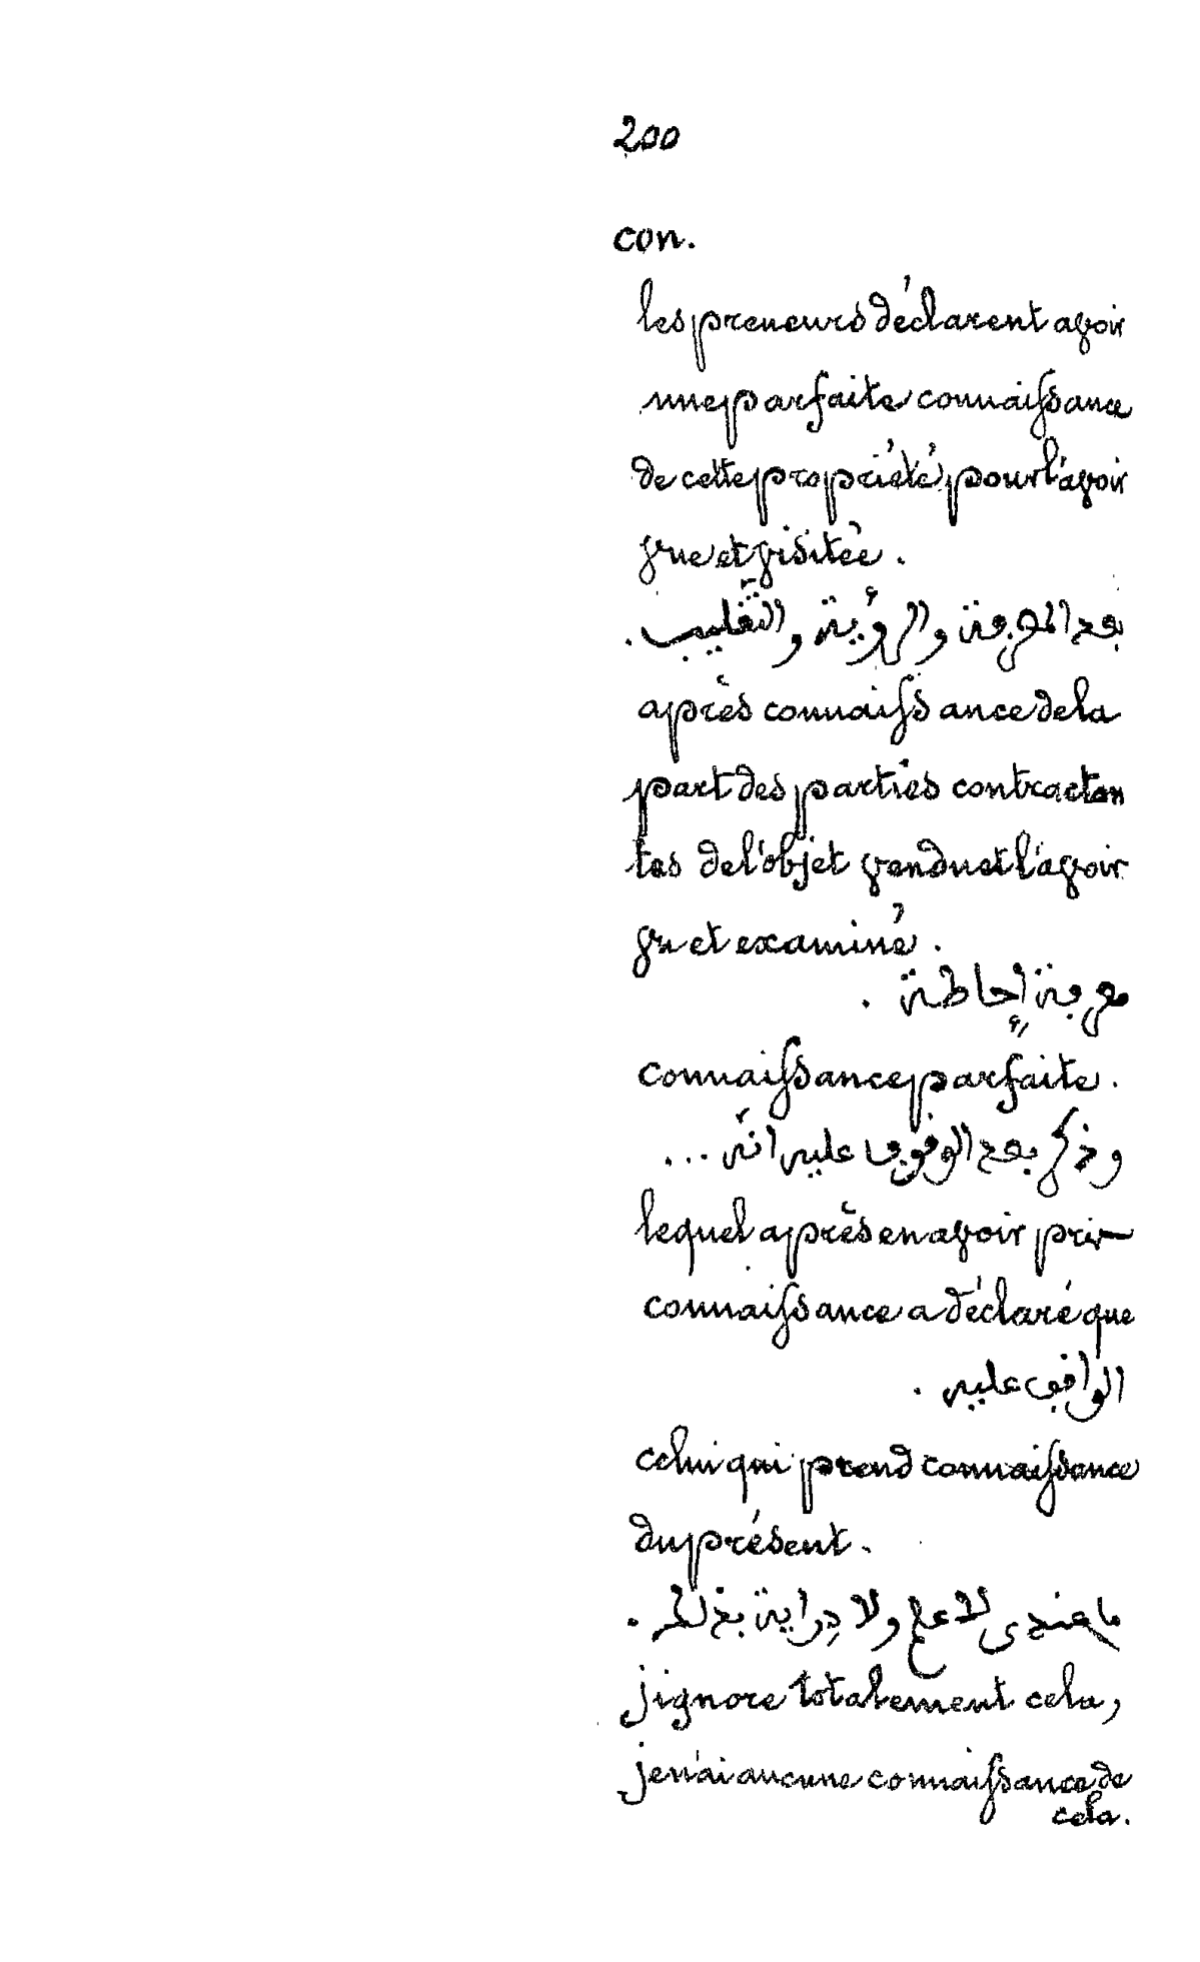 200
con.
les preneurs déclarent avoir
une parfaite connaissance
de cette propriété, pour l'avoir
vue et visitée.
بعد المعرفة والرؤية والتقليب.
après connaissance de la
part des parties contractan
tes de l'objet vendu et l'avoir
vu et examiné.
معرفة إحاطة.
connaissance parfaite.
وذكر بعد الوقوف عليه انّه ...
lequel après en avoir pris
connaissance a déclaré que
الواقف عليه.
celui qui prend connaissance
du présent.
ما عندي لا علم ولا دِراية بذلك.
j'ignore totalement cela,
je n'ai aucune connaissance de
cela.